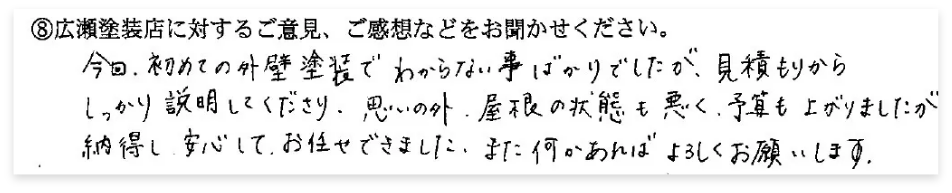 ⑧広瀬塗装店に対するご意見、ご感想などをお聞かせください。
今回、初めての外壁塗装でわからない事ばかりでしたが、見積もりから
しっかり説明してくださり、思いの外、屋根の状態も悪く、予算も上がりましたが
納得し、安心して、お任せできました、また何かあればよろしくお願いします。